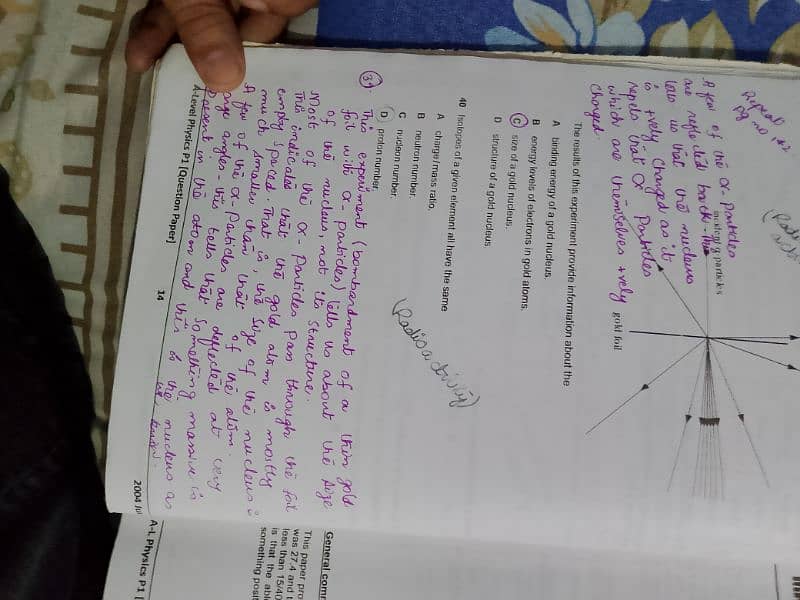 Repeat
Pg no 182.
(Radio
A few of the α-particles
are reflected back - this
tells us that the nucleus
is +vely charged as it
repels that α Particles
which are themselves +vely
charged.
incident α-particles
gold foil
The results of this experiment provide information about the
A binding energy of a gold nucleus.
B energy levels of electrons in gold atoms.
C size of a gold nucleus.
D structure of a gold nucleus.
40 Isotopes of a given element all have the same
A charge / mass ratio.
B neutron number.
C nucleon number.
D proton number.
(Radioactivity)
39 This experiment (bombardment of a thin gold
foil with α-particles) tells us about the size
of the nucleus, not its structure.
Most of the α-Particles Pass through the foil
This indicates that the gold atom is mostly
empty spaced. That is, the size of the nucleus is
much smaller than that of the atom.
A few of the α-Particles are deflected at very
large angles. this tells that Something massive is
Present in the atom and this is the nucleus as
we know.
A-Level Physics P1 [Question Paper]
14
2004 Ju
A-L Physics P1 [
General comm
This paper pro
was 27.4 and t
less than 15/40
is that the able
something posit